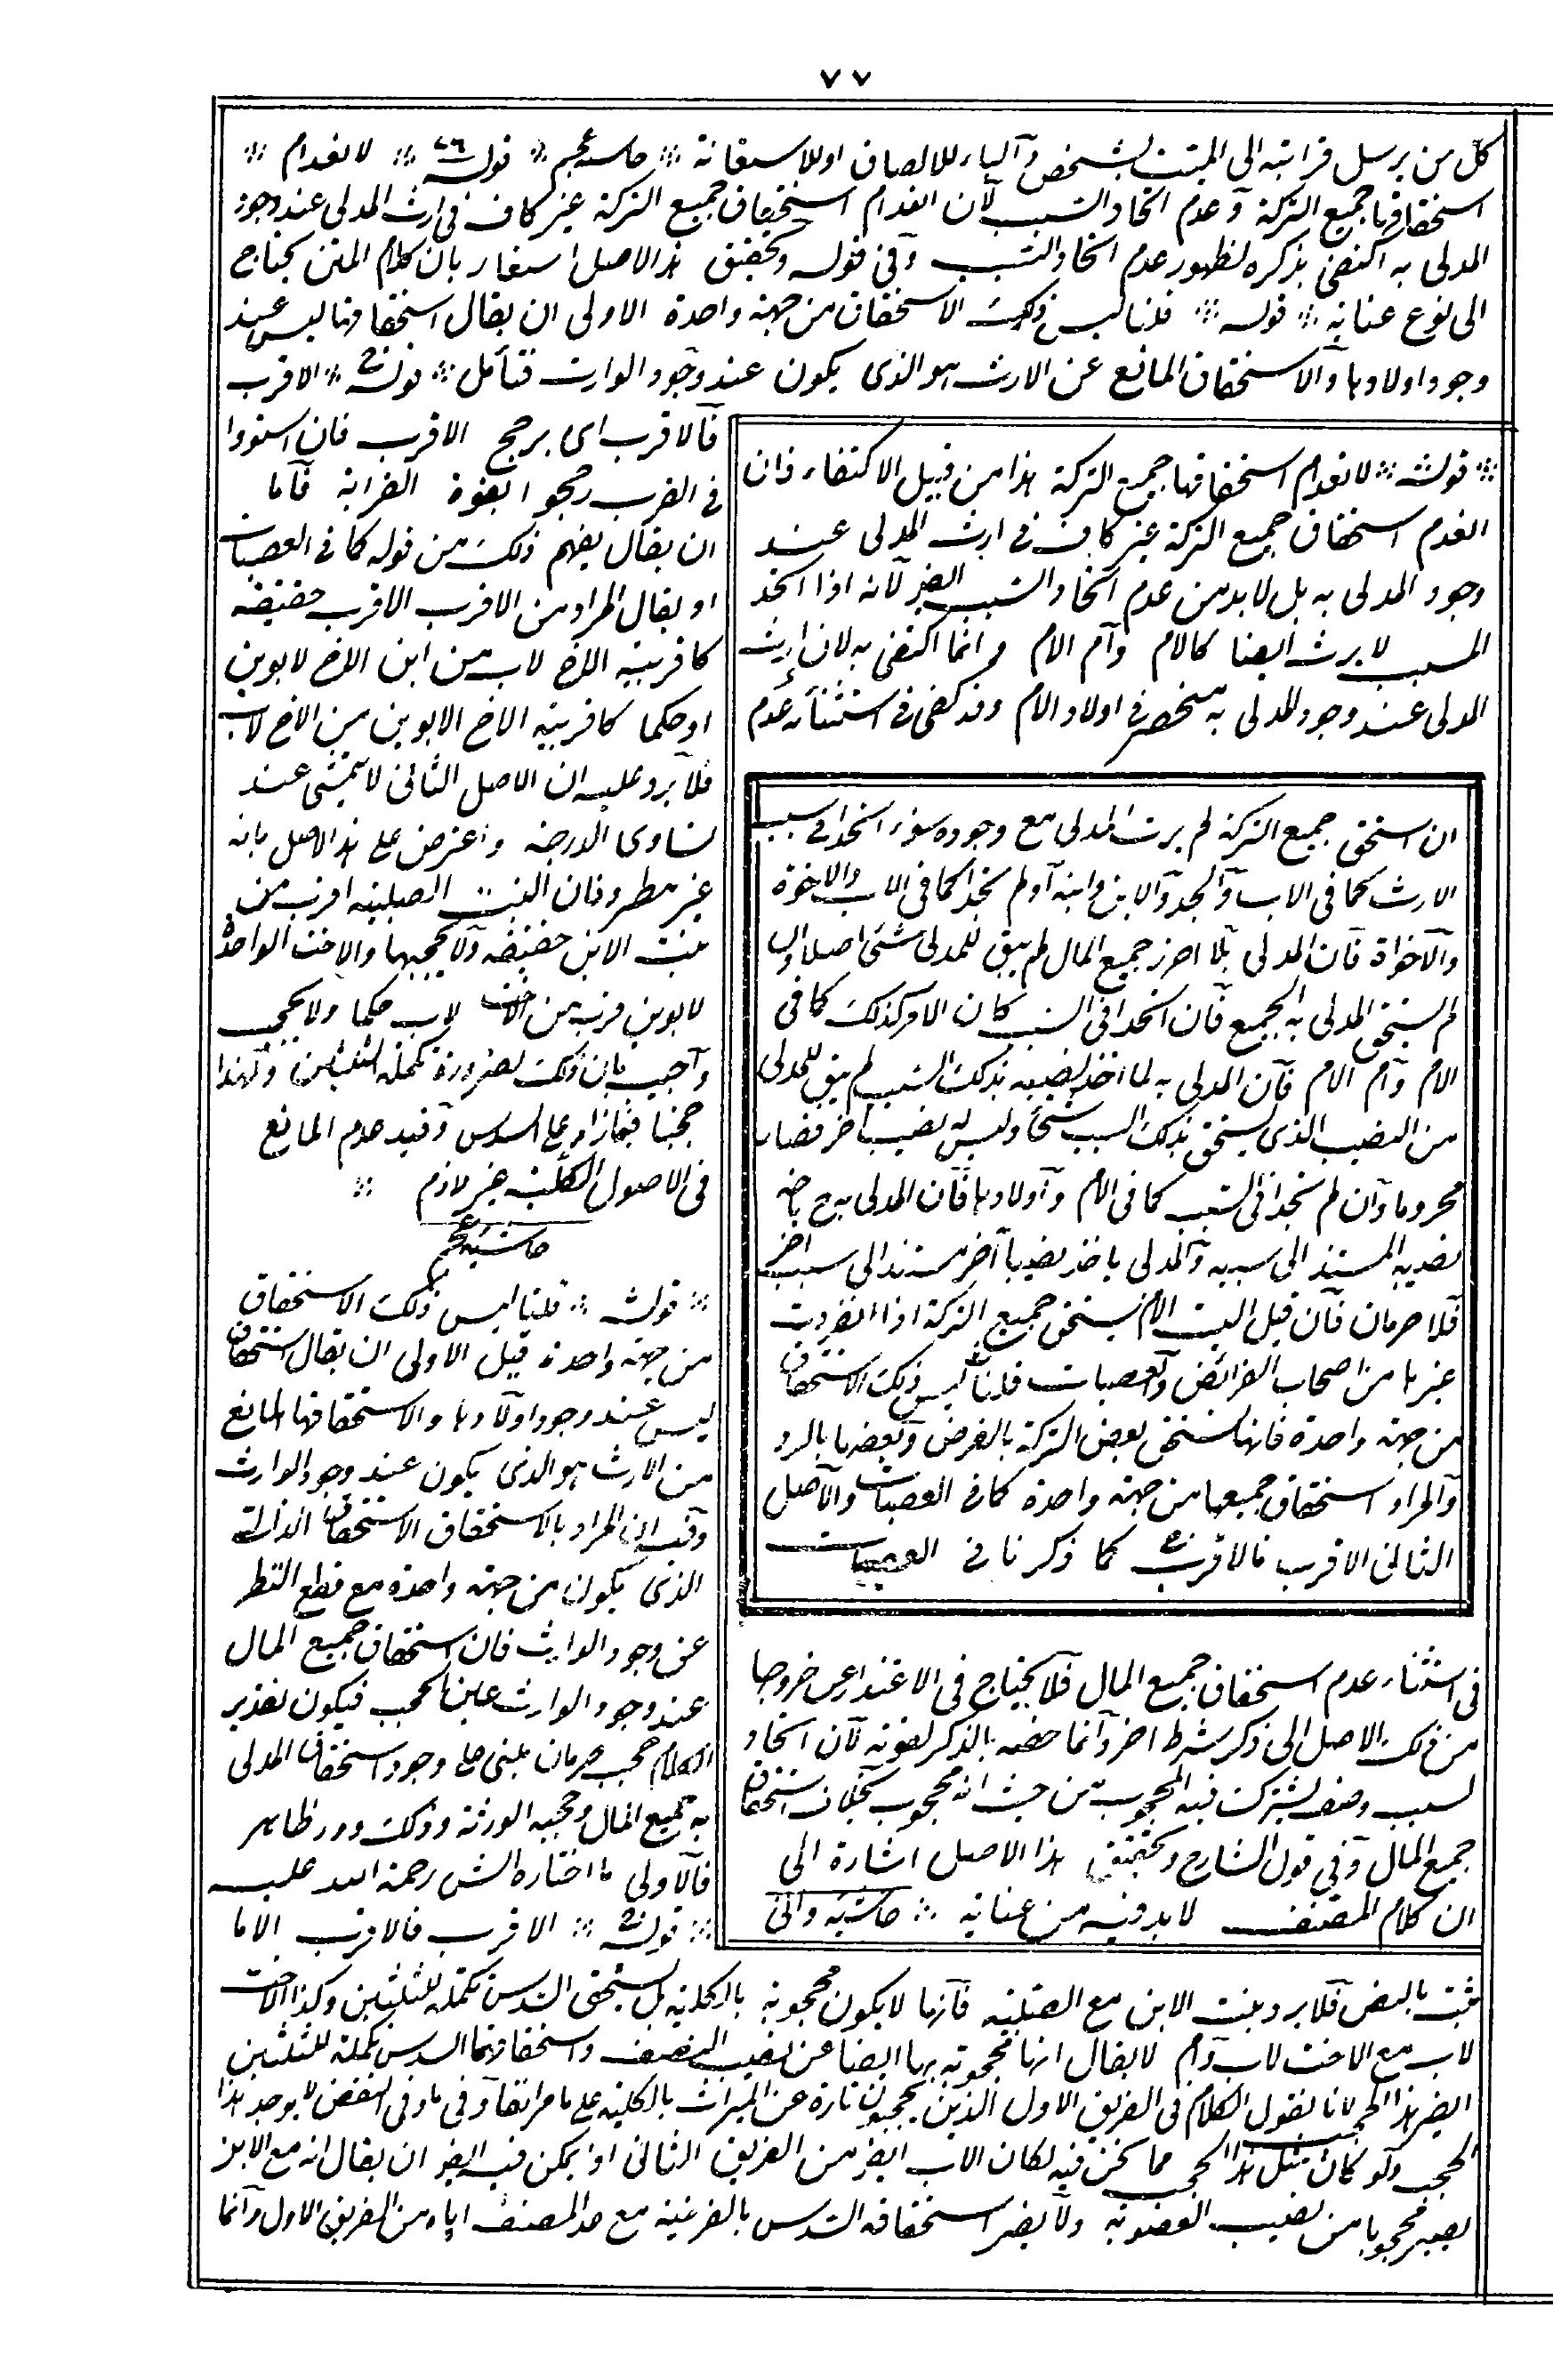 ٧٧
كل من يرسل قرابته الى الميت بشخص والباء للالصاق او للاستعانة حاشية عجم قوله لانعدام
استحقاقها جميع التركة وعدم اتحاد السبب لان انعدام استحقاق جميع التركة غير كاف فى ارث المدلى عند وجود
المدلى به اكتفى بذكره لظهور عدم اتحاد السبب وفى قوله وتحقيق هذا الاصل اشعار بان كلام المتن يحتاج
الى نوع عناية قوله قلنا ليس ذلك الاستحقاق من جهة واحدة الاولى ان يقال استحقاقها ليس عند
وجود اولادها والاستحقاق المانع عن الارث هو الذى يكون عند وجود الوارث فتأمل قوله الاقرب
قوله لانعدام استحقاقها جميع التركة هذا من قبيل الاكتفاء فان
انعدام استحقاق جميع التركة غير كاف فى ارث المدلى عند
وجود المدلى به بل لابد من عدم اتحاد السبب ايضا لانه اذا اتحد
السبب لا يرث ايضا كالام وام الام وانما اكتفى به لان ارث
المدلى عند وجود المدلى به منحصر فى اولاد الام وقد كفى فى استثنائه عدم
ان استحق جميع التركة لم يرث المدلى مع وجوده سواء اتحدا فى سبب
الارث كما فى الاب والجد والابن وابنه او لم يتحدا كما فى الاب والاخوة
والاخوات فان المدلى به لما احرز جميع المال لم يبق للمدلى شئ اصلا وان
لم يستحق المدلى به الجميع فان اتحدا فى السبب كان الامر كذلك كما فى
الام وام الام فان المدلى به لما اخذ نصيبه بذلك السبب لم يبق للمدلى
من النصيب الذى يستحق بذلك السبب شئ وليس له نصيب اخر فصار
محروما وان لم يتحدا فى السبب كما فى الام واولادها فان المدلى به ح ياخذ
نصيبه المستند الى سببه والمدلى ياخذ نصيبا آخر مستندا الى سبب اخر
فلا حرمان فان قيل اليست الام يستحق جميع التركة اذا انفردت
غيرها من اصحاب الفرائض والعصبات قلنا ليس ذلك الاستحقاق
من جهة واحدة فانها تستحق بعض التركة بالفرض وبعضها بالرد
والمراد استحقاق جميعها من جهة واحدة كما فى العصبات والاصل
الثانى الاقرب فالاقرب كما ذكرنا فى العصبات
فى استثناء عدم استحقاق جميع المال فلا يحتاج فى الاعتذار عن خروجها
من ذلك الاصل الى ذكر شرط اخر وانما خصه بالذكر لقوته لان اتحاد
لسبب وصف يشترك فيه المحجوب من حيث انه محجوب بخلاف استحقاق
جميع المال وفى قول الشارح وتحقيق هذا الاصل اشارة الى
ان كلام المصنف لابد فيه من عناية حاشيه وانى
فالاقرب اى يرجح الاقرب فان استووا
فى القرب رجحوا بقوة القرابة فاما
ان يقال يفهم ذلك من قوله كما فى العصبات
او يقال المراد من الاقرب الاقرب حقيقة
كاقربية الاخ لاب من ابن الاخ لابوين
او حكما كاقربية الاخ لابوين من الاخ لاب
فلا يرد عليه ان الاصل الثانى لا يتمشى عند
تساوى الدرجة واعترض على هذا الاصل بانه
غير مطرد فان البنت الصلبية اقرب من
بنت الابن حقيقة ولا يحجبها والاخت الواحدة
لابوين اقرب من اخت لاب حكما ولا يحجب
واجيب بان ذلك لضرورة تكملة الثلثين ولهذا
حجبتا فيما زاد على السدس وقيد عدم المانع
فى الاصول الكلية غير لازم
حاشيه عجم
قوله قلنا ليس ذلك الاستحقاق
من جهة واحدة قيل الاولى ان يقال استحقاق
ليس عند وجود اولادها والاستحقاقها المانع
من الارث هو الذى يكون عند وجود الوارث
وفيه ان المراد بالاستحقاق الاستحقاق الذاتى
الذى يكون من جهة واحدة مع قطع النظر
عن وجود الوارث فان استحقاق جميع المال
عند وجود الوارث عين الحجب فيكون تقدير
الكلام حجب حرمان يبنى على وجود استحقاق المدلى
به جميع المال وحجبه الورثة وذلك دور ظاهر
فالاولى ما اختاره الش رحمة الله عليه
قوله الاقرب فالاقرب الا ما
ثبت بالنص فلا يرد بنت الابن مع الصلبية فانها لا يكون محجوبة بالكلية بل يستحق السدس تكملة للثلثين وكذا الاخت
لاب مع الاخت لاب وام لا يقال انها محجوبة بها ايضا عن نصيب النصف واستحقاقهما السدس تكملة للثلثين
ايضر هذا الحجب لانا نقول الكلام فى الفريق الاول الذين يحجبون تارة عن الميراث بالكلية على ما مر انفا وفى مادة النقض لا يوجد هذا
الحجب ولو كان مثل هذا الحجب مما نحن فيه لكان الاب ايضا من الفريق الثانى اذ يمكن فيه ايضا ان يقال انه مع الابن
يصير محجوبا من نصيب العصوبة ولا يضر استحقاقه السدس بالفرضية مع عد المصنف اياه من الفريق الاول وانما